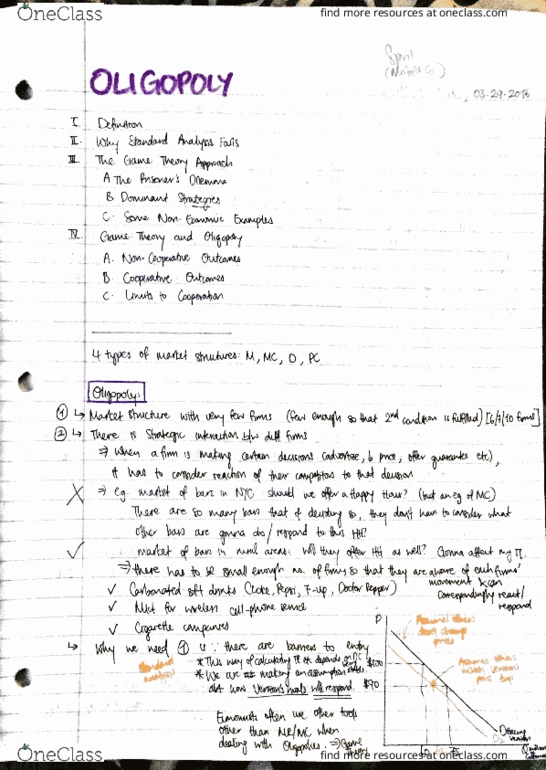 OneClass
find more resources at oneclass.com
03-29-2016
OLIGOPOLY
I. Definition
II. Why Standard Analysis Fails
III. The Game Theory Approach
A The Prisoner's Dilemma
B. Dominant Strategies
C. Some Non-Economic Examples
IV. Game Theory and Oligopoly
A. Non-Cooperative Outcomes
B. Cooperative Outcomes
C. Limits to Cooperation
4 types of market structures: M, MC, O, PC
Oligopoly:
① ↳ Market structure with very few firms (few enough so that 2nd condition is fulfilled) [6/7/10 firms]
② ↳ There is strategic interaction b/w diff firms
⇒ when a firm is making certain decisions (advertise, ↓ price, offer guarantee etc),
it has to consider reaction of their competitors to that decision
X ⇒ eg. market of bars in NYC should we offer a Happy Hour? (but an eg of MC)
There are so many bars that if deciding so, they don't have to consider what
other bars are gonna do / respond to this HH.
✓ market of bars in rural areas: will they offer HH as well? Gonna affect my π.
⇒ there has to be small enough no. of firms so that they are aware of each firms'
movement & can
correspondingly react/
respond
✓ Carbonated soft drinks (Coke, Pepsi, 7-up, Doctor Pepper)
✓ Mkt for wireless cell-phone service
✓ Cigarette companies
↳ Why we need ① is ∵ there are barriers to entry
* This way of calculating π etc depends on
* We are making an assumption
abt how Verizon's rivals will respond
Economists often use other tools
other than MR/MC when
dealing with Oligopolies. ⇒ Game
theory
standard analysis
P
$100
$90
Assumes others
don't change
prices
Assumes others
match Verizon's
price
OneClass
find more resources at oneclass.com